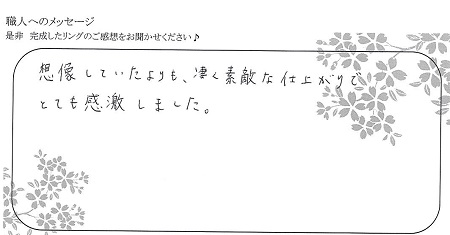 職人へのメッセージ
是非 完成したリングのご感想をお聞かせください♪
想像していたよりも、凄く素敵な仕上がりで
とても感激しました。